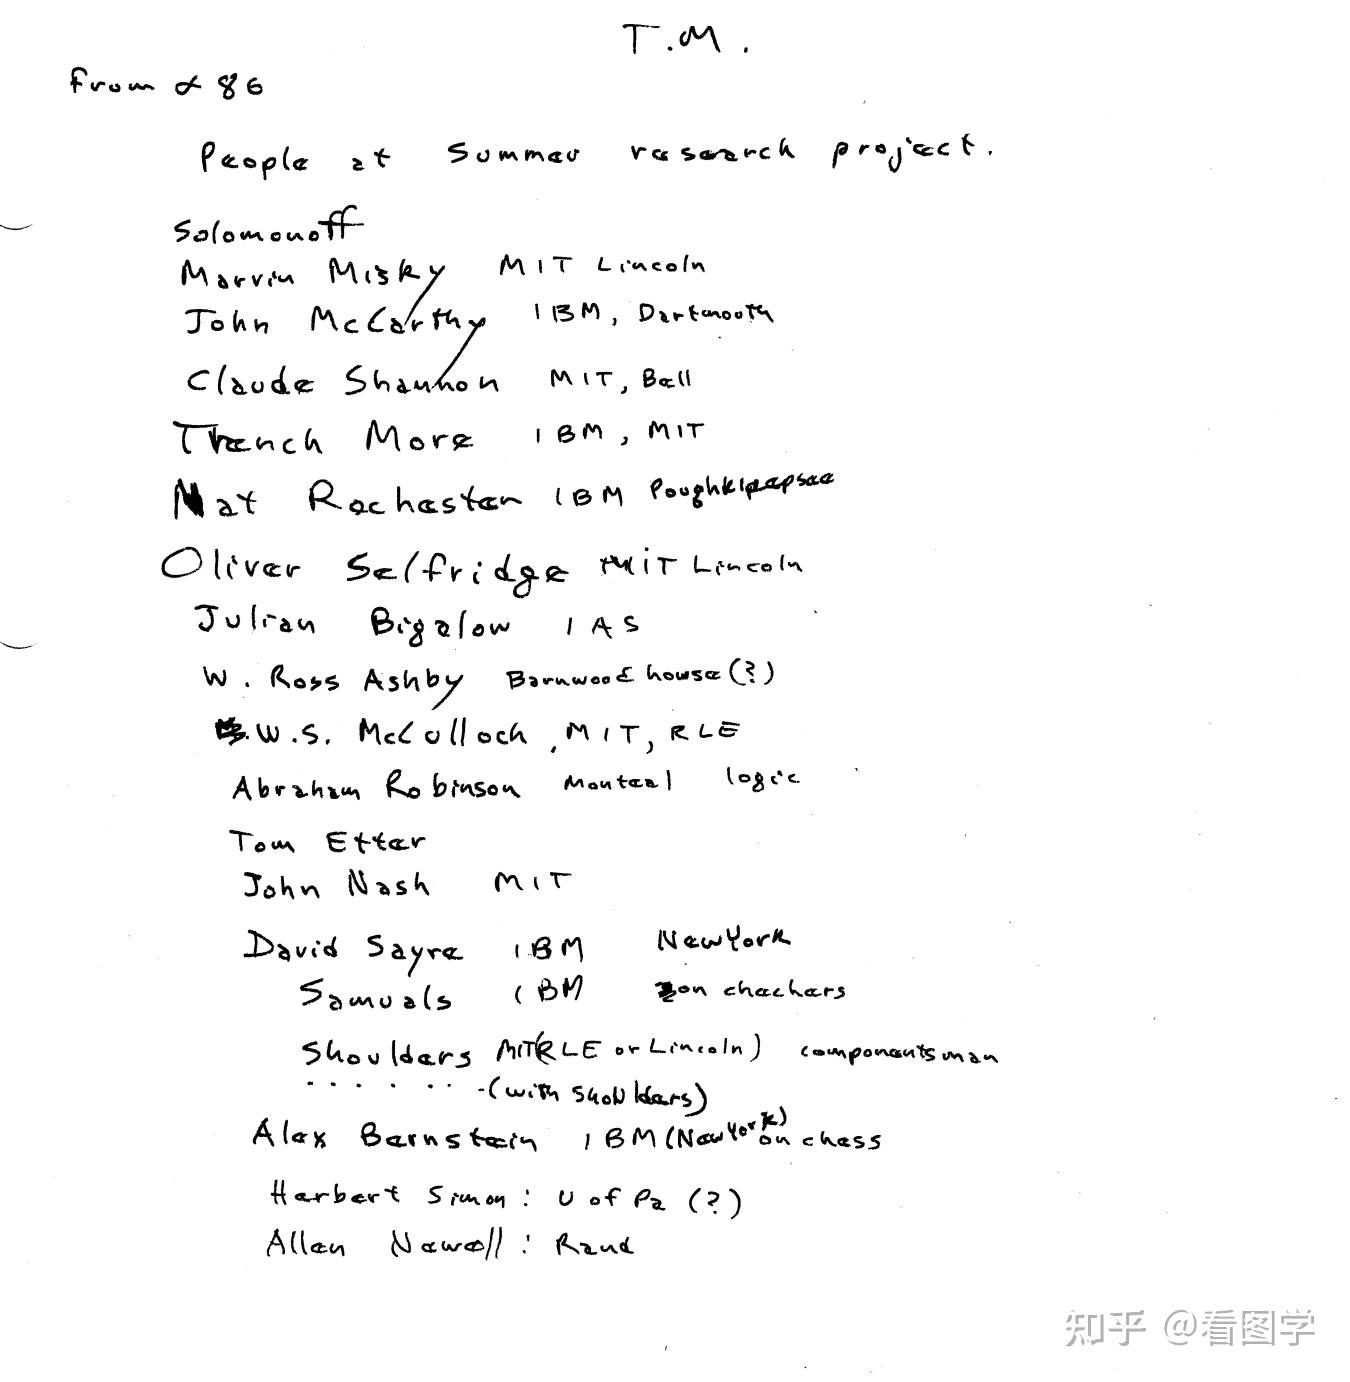 T.M.
From α 86
People at Summer research project.
Solomonoff
Marvin Misky MIT Lincoln
John McCarthy IBM, Dartmouth
Claude Shannon MIT, Bell
Trench More IBM, MIT
Nat Rochester IBM Poughkipepsee
Oliver Selfridge MIT Lincoln
Julian Bigelow IAS
W. Ross Ashby Barnwood house (?)
W.S. McCulloch, MIT, RLE
Abraham Robinson Monteal logic
Tom Etter
John Nash MIT
David Sayre IBM New York
Samuals IBM on checkers
Shoulders MIT(RLE or Lincoln) componentsman
. . . . . . . (with Shoulders)
Alex Bernstein IBM (New York) on chess
Herbert Simon: U of Pa (?)
Allen Newell: Rand
知乎 @看图学